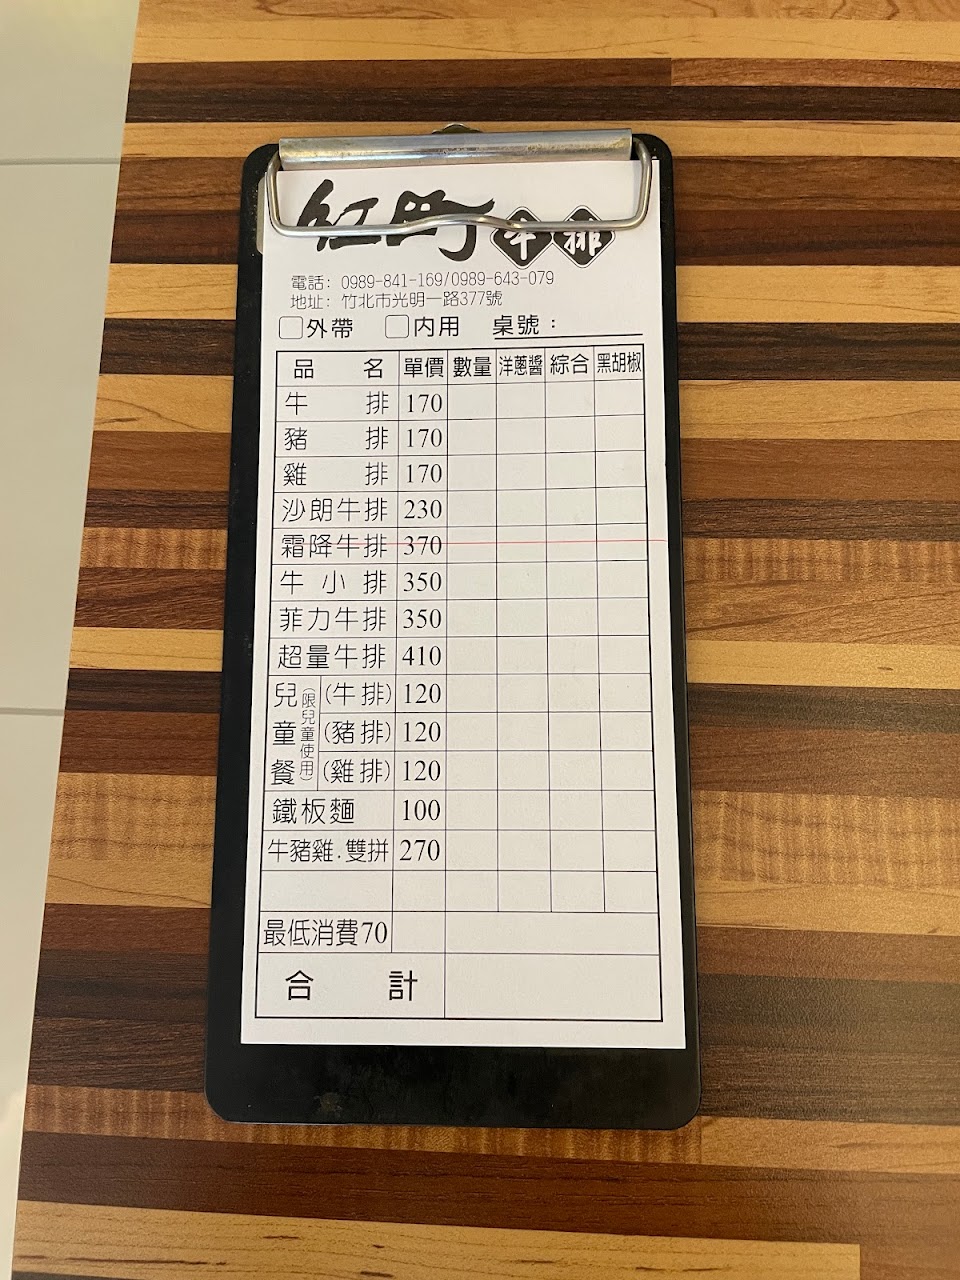 紅町牛排
電話: 0989-841-169/0989-643-079
地址: 竹北市光明一路377號
外帶 內用 桌號:
品名 單價 數量 洋蔥醬 綜合 黑胡椒
牛排 170
豬排 170
雞排 170
沙朗牛排 230
霜降牛排 370
牛小排 350
菲力牛排 350
超量牛排 410
兒童餐(限兒童使用) (牛排) 120
(豬排) 120
(雞排) 120
鐵板麵 100
牛豬雞.雙拼 270
最低消費70
合計